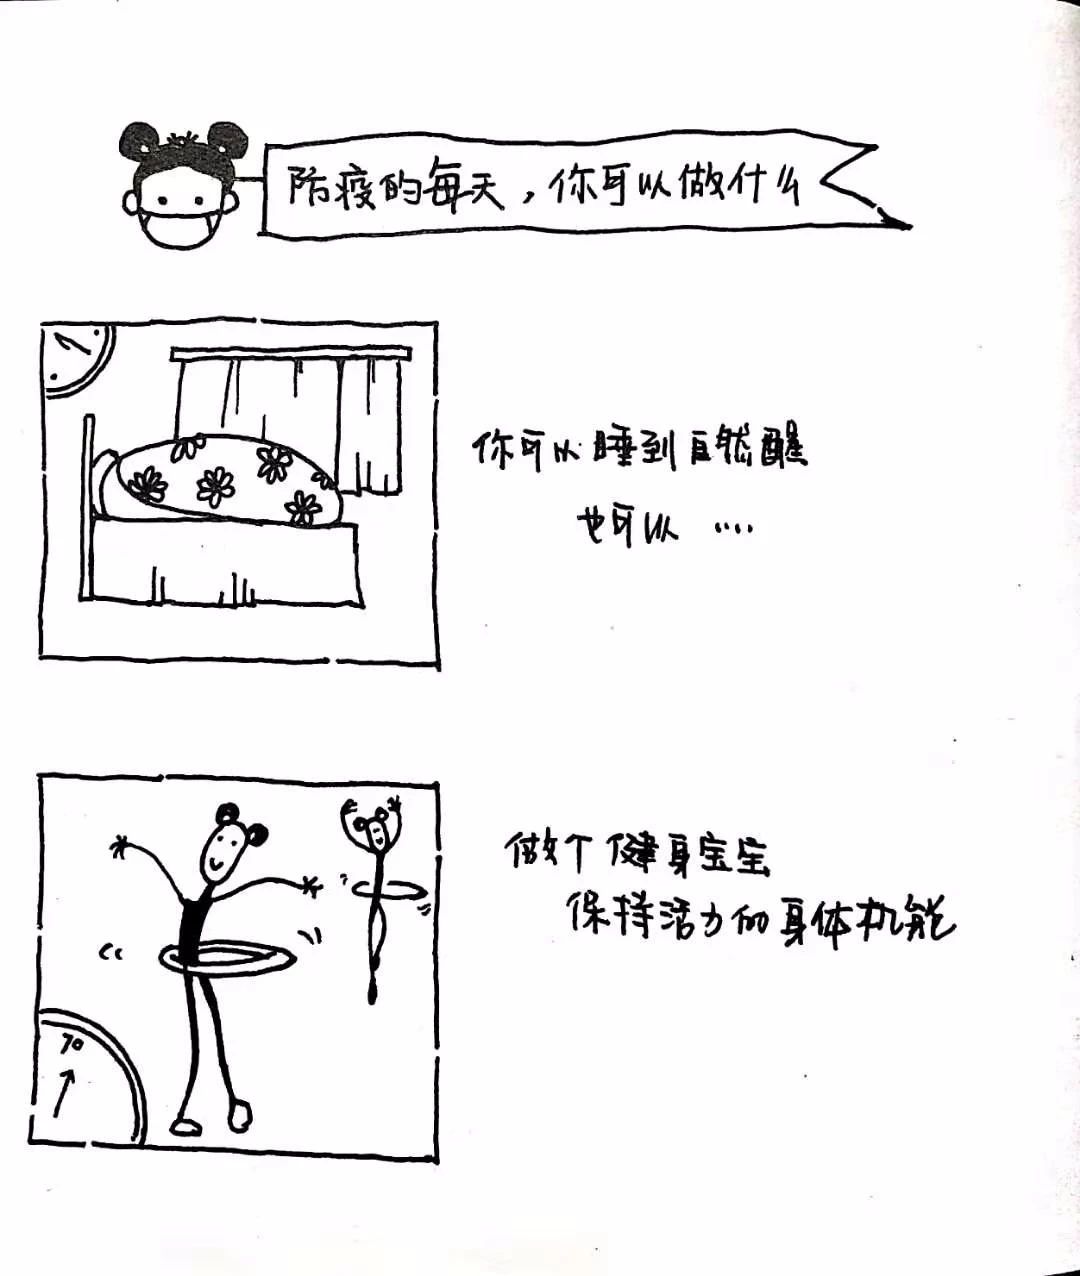 防疫的每天，你可以做什么
你可以睡到自然醒
也可以 ....
做个健身宝宝
保持活力的身体机能
70